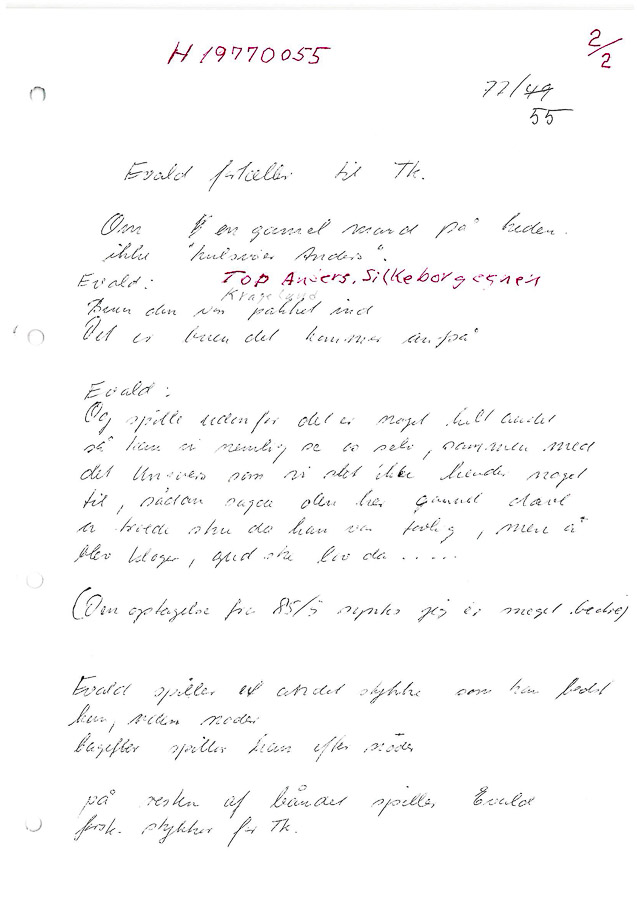 H 19770055
2/2
77/49
55
Evald fortæller til Th.
Om en gammel mand på heden.
ikke "kulsvier Anders".
Evald: Top Anders, Silkeborgegnen
Krageland
den var pakket ind
Det er bare det kommer an på
Evald:
Og spille udenfor det er noget helt andet
så kan vi nemlig se os selv, sammen med
det Univers som vi slet ikke kender noget
til, sådan sagde den her gamle
da han var, men å
blev klogere, gud ske lov da .....
(Den optagelse fra 85/5 syntes jeg er meget bedre)
Evald spiller et andet stykke som han bedst
kan, uden noder
bagefter spiller han efter noder
på resten af båndet spiller Evald
forsk. stykker for Th.